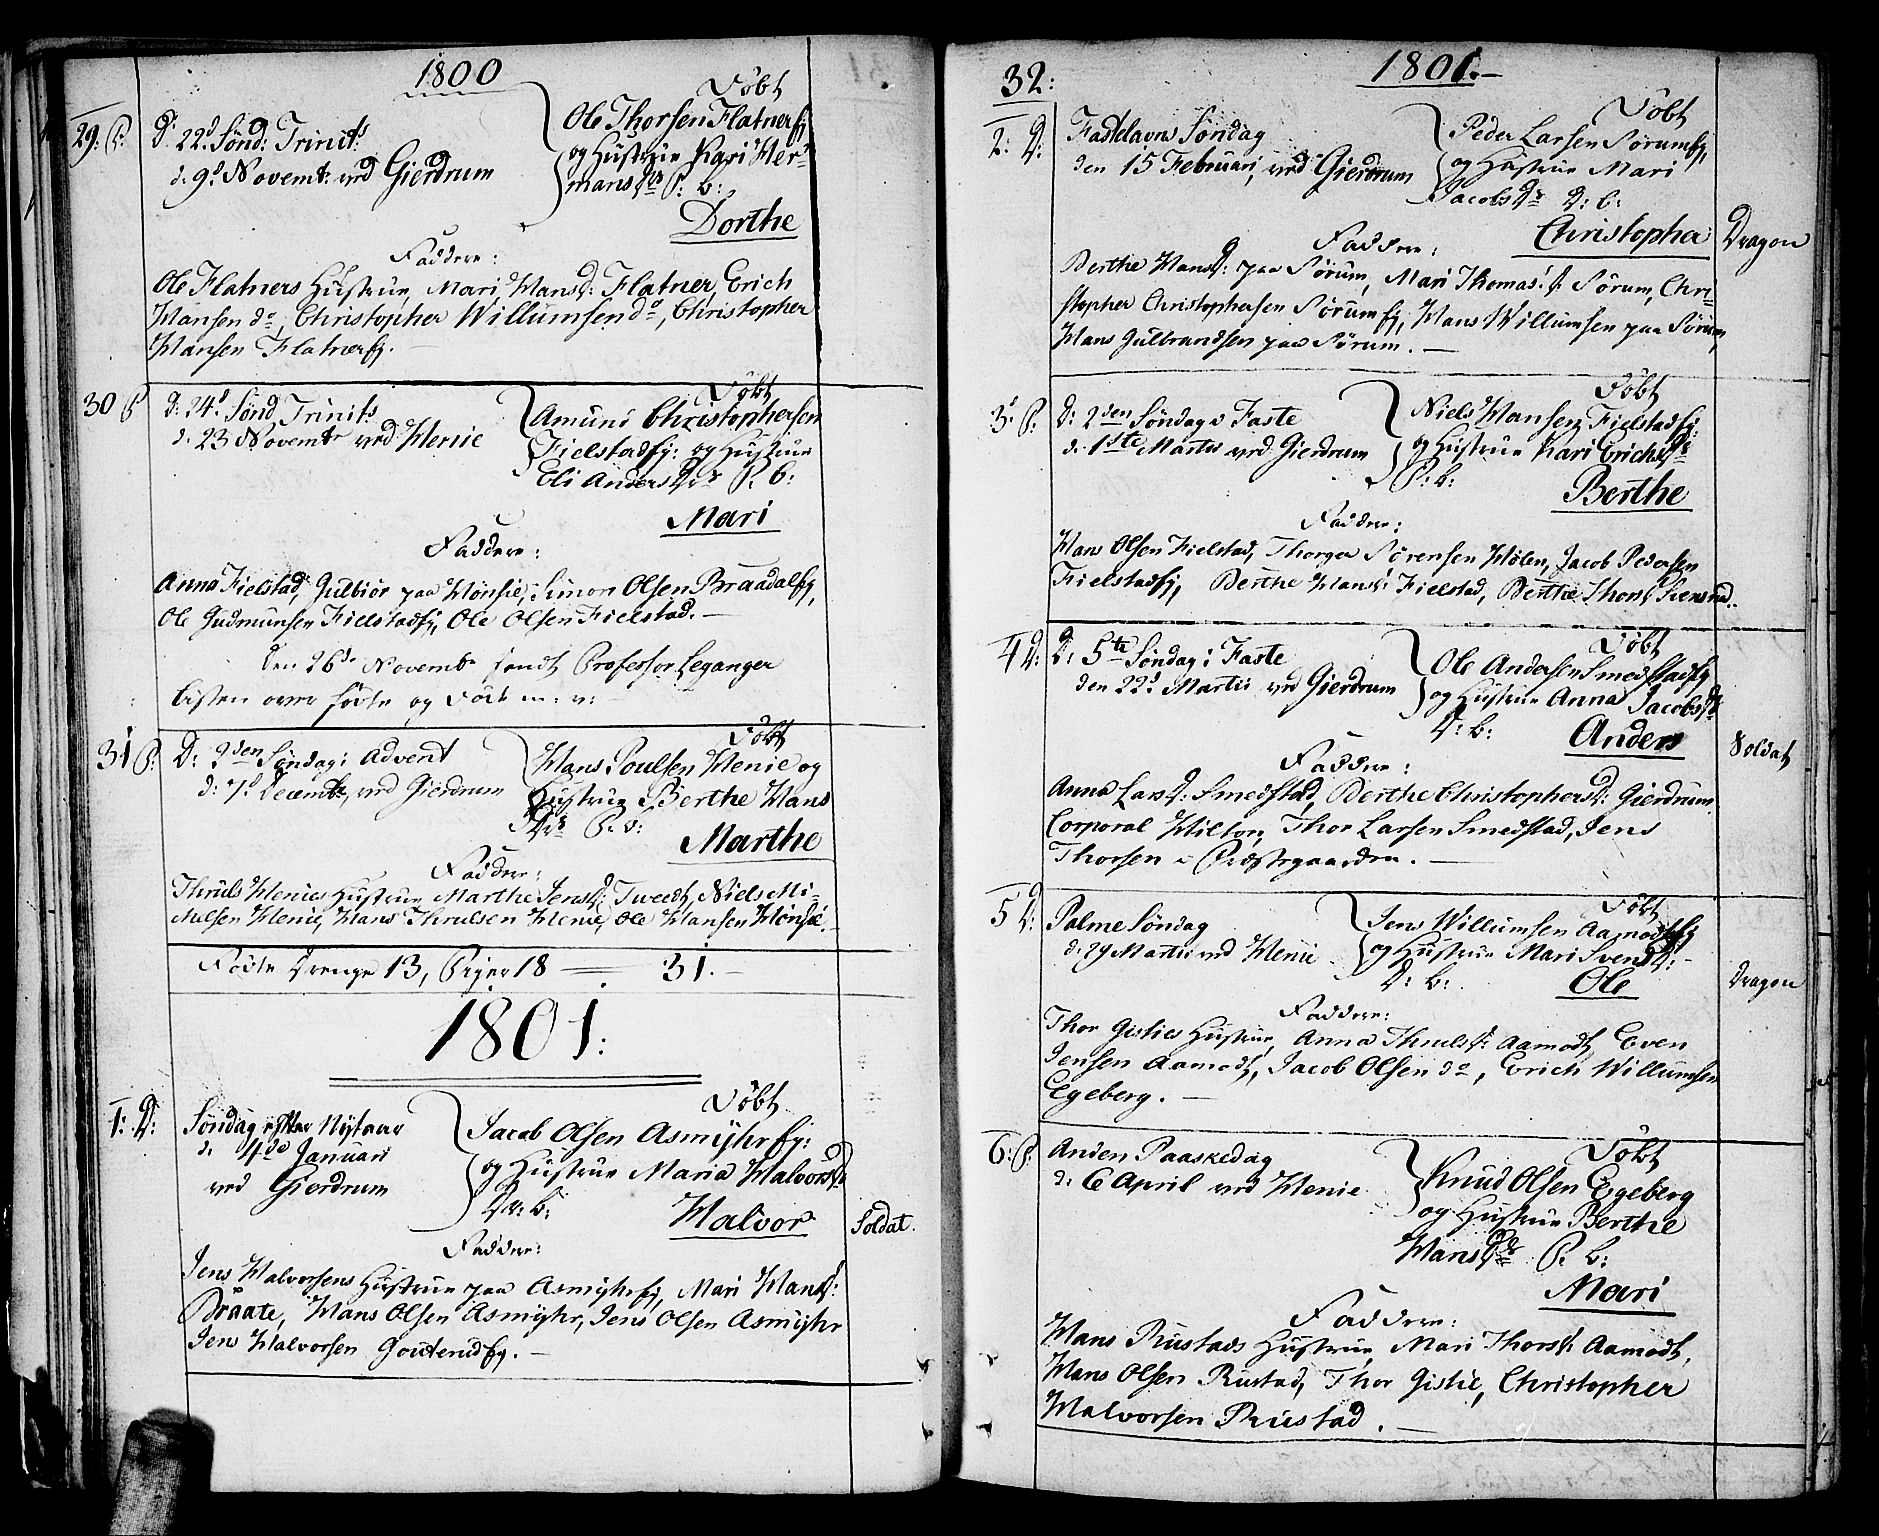 1800
29: P:
D: 22d Sønd: Trinit:
d: 9d Novembr: ved Gierdrum
Døbt
Ole Thorsen Flatnerfg
og Hustrue Kari Her-
mansdr P: b:
Dorthe
Faddere:
Ole Flatners Hustrue, Mari Hansd: Flatner, Erich
Hansen do, Christopher Willumsen do, Christopher
Hansen Flatnerfg. —
30 P
d: 24d Sønd Trinits
d: 23 Novembr ved Henie
Døbt
Amund Christophersen
Fielstadfg: og Hustrue
Eli Anders Dr P. b:
Mari
Faddere:
Anna Fielstad, Gulbiør paa Hønsie, Simon Olsen Braadalfg,
Ole Gudmunsen Fielstadfg, Ole Olsen Fielstad. —
den 26de Novembr sendt Professor Leganger
Listen over fødte og Døde m: v: —
31 P:
D: 2den Søndag i Advent
d: 7d Decembr, ved Gierdrum
Døbt
Hans Poulsen Henie og
Hustrue Berthe Hans
Dr P. b:
Marthe
Faddere:
Thruls Henies Hustrue, Marthe Jensd: Tweedt, Niels Mi-
Nielsen Henie, Hans Thrulsen Henie, Ole Hansen Hønsie. —
Fødte Drenge 13, Piger 18 — 31. —
1801:
1: D:
Søndag efter Nytaar
d: 4de Januari
ved Gierdrum
Døbt
Jacob Olsen Asmyhrfg:
og Hustrue Maria Halvorsdr
Dr: b:
Halvor
Soldat.
Faddere:
Jens Halvorsens Hustrue paa Asmyhrfg, Mari Hansd:
Braate, Hans Olsen Asmyhr, Jens Olsen Asmyhr
Jens Halvorsen Goutenufg. —
32:
1801. —
2: D:
Fastelavns Søndag
den 15 Februari, ved Gierdrum
Døbt
Peder Larsen Sørumfg,
og Hustrue Mari
Jacobs Dr D: b:
Christopher
Dragon
Faddere:
Berthe Hansd: paa Sørum, Mari Thomasd: Sørum, Chri-
stopher Christophersen Sørumfg, Hans Willumsen paa Sørum,
Hans Gulbrandsen paa Sørum. —
3: P:
D: 2den Søndag i Faste
d: 1ste Martii ved Gierdrum
Døbt
Niels Hansen Fielstadfg:
og Hustrue Kari Erichsdr
P: b:
Berthe
Faddere:
Hans Olsen Fielstad, Thorger Sørensen Hølen, Jacob Pedersen
Fielstadfg, Berthe Hansd: Fielstad, Berthe Thorsd:
4 D:
D: 5te Søndag i Faste
den 22d Martii ved Gierdrum
Døbt
Ole Andersen Smedstadfg
og Hustrue Anna Jacobsdr
D: b:
Anders
Soldat
Faddere:
Anna Larsd: Smedstad, Berthe Christophersd: Gierdrum
Corporal Hilton, Thor Larsen Smedstad, Jens
Thorsen i Præstegaarden. —
5 D:
Palme Søndag
d: 29 Martii ved Henie
Døbt
Jens Willumsen Aamodtfg
og Hustrue Mari Svensd:
D: b:
Ole
Dragon
Faddere:
Thor Gisties Hustrue, Anna Thrulsd: Aamodt, Even
Jensen Aamodt, Jacob Olsen do, Erich Willumsen
Egeberg. —
6: P:
Anden Paaskedag
d: 6 April ved Henie
Døbt
Knud Olsen Egeberg
og Hustrue Berthe
Hansdr P. b:
Mari
Faddere:
Hans Rustads Hustrue, Mari Thorsd: Aamodt,
Hans Olsen Rustad, Thor Gistie, Christopher
Halvorsen Rustad. —